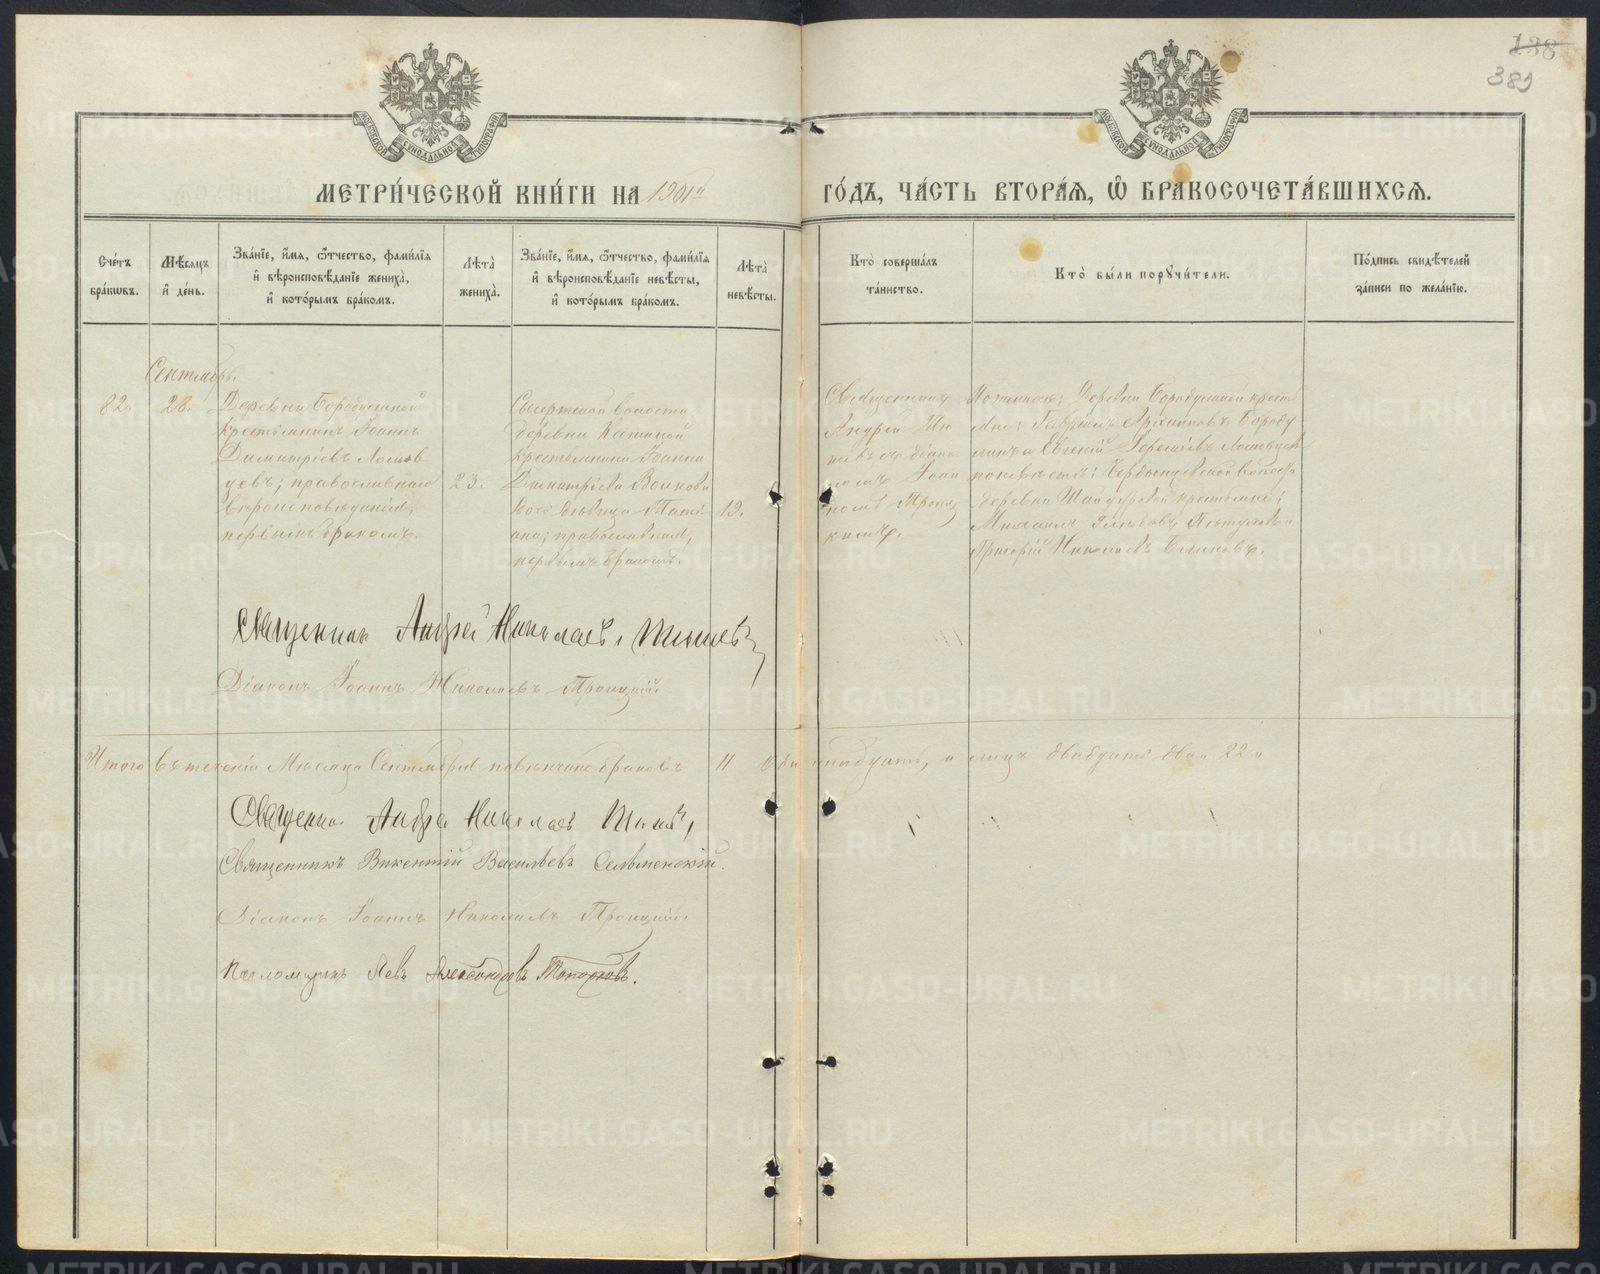 138
389
МОСКОВСКОЙ СѴНОДАЛЬНОЙ ТИПОГРАФІИ
МОСКОВСКОЙ СѴНОДАЛЬНОЙ ТИПОГРАФІИ
МЕТРИ́ЧЕСКОЙ КНИ́ГИ НА 1901й
ГО́ДЪ, ЧА́СТЬ ВТОРА́Ѧ, Ѡ҆ БРАКОСОЧЕТА́ВШИХСѦ.
Сче́тъ бра́кѡвъ.
Мѣ́сѧцъ и҆ де́нь.
Зва́нїе, и҆́мѧ, ѻ҆́тчество, фами́лїѧ и҆ вѣроисповѣ́данїе жениха̀, и҆ кото́рымъ бра́комъ.
Лѣ́та̀ жениха̀.
Зва́нїе, и҆́мѧ, ѻ҆́тчество, фами́лїѧ и҆ вѣроисповѣ́данїе невѣ́сты, и҆ кото́рымъ бра́комъ.
Лѣ́та̀ невѣ́сты.
Кто̀ соверша́лъ та́инство.
Кто̀ бы́ли порꙋчи́тели.
По́дпись свидѣ́телей за́писи по жела́нїю.
Сентябрь.
82.
28.
Деревни Бородулиной
крестьянинъ Іоаннъ
Димитріевъ
православнаго
вѣроисповѣданія,
первымъ бракомъ.
23.
Сысертской волости
деревни Кашиной
крестьянина Іоанна
Димитріева Волкова
дочь дѣвица Тати-
ана; православная,
первымъ бракомъ.
19.
Священникъ
Андрей
съ діако
номъ Іоан
номъ Троиц
кимъ.
По женихѣ: деревни Бородулиной кресть
яне: Гавріилъ Архиповъ Бороду
линъ и Евгеній
по невѣстѣ: волости
деревни крестьяне:
Михаилъ Глѣбовъ и
Григорій Николаевъ
Священник Андрей Николаевъ
Діаконъ Іоаннъ Николаевъ Троицкій.
Итого въ теченіи мѣсяца Сентября повѣнчано браковъ 11 одиннадцать, а лицъ двадцать два 22.
Священник Андрей Николаевъ
Священникъ Викентій Васильевъ Сельменскій.
Діаконъ Іоаннъ Николаевъ Троицкій.
Псаломщикъ Левъ Александровъ Топорковъ.
METRIKI.GASO-URAL.RU